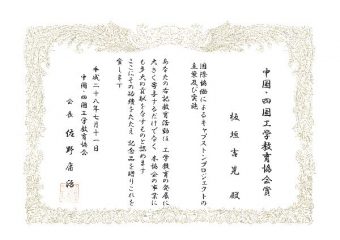 中国・四国工学教育協会賞
板垣吉晃 殿
国際協働によるキャップストーンプロジェクトの
立案及び実施
あなたの右記教育活動は 工学教育の発展に
大きく寄与するだけでなく 本協会の事業に
も多大の貢献をなすものと認めます
ここにその功績をたたえ 記念品を贈りこれを
賞します
平成二十八年七月十一日
中国・四国工学教育協会
会長 佐野庸治